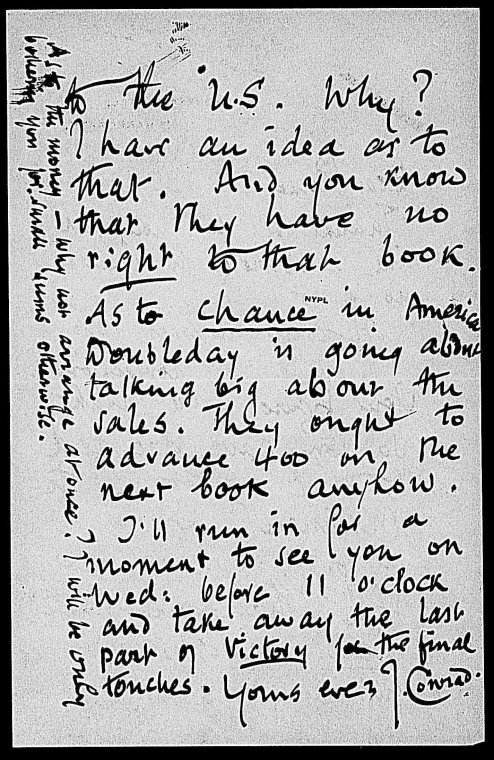 to the U.S. Why?
I have an idea as to
that. And you know
that they have no
right to that book.
As to Chance in America
Doubleday is going about
talking big about the
sales. They ought to
advance 400 on the
next book anyhow.
I'll run in for a
moment to see you on
Wed: before 11 o'clock
and take away the last
part of Victory for the final
touches. Yours ever J. Conrad.
As to the money – why not arrange at once? I will be only
bothering you for small sums otherwise.
NYPL